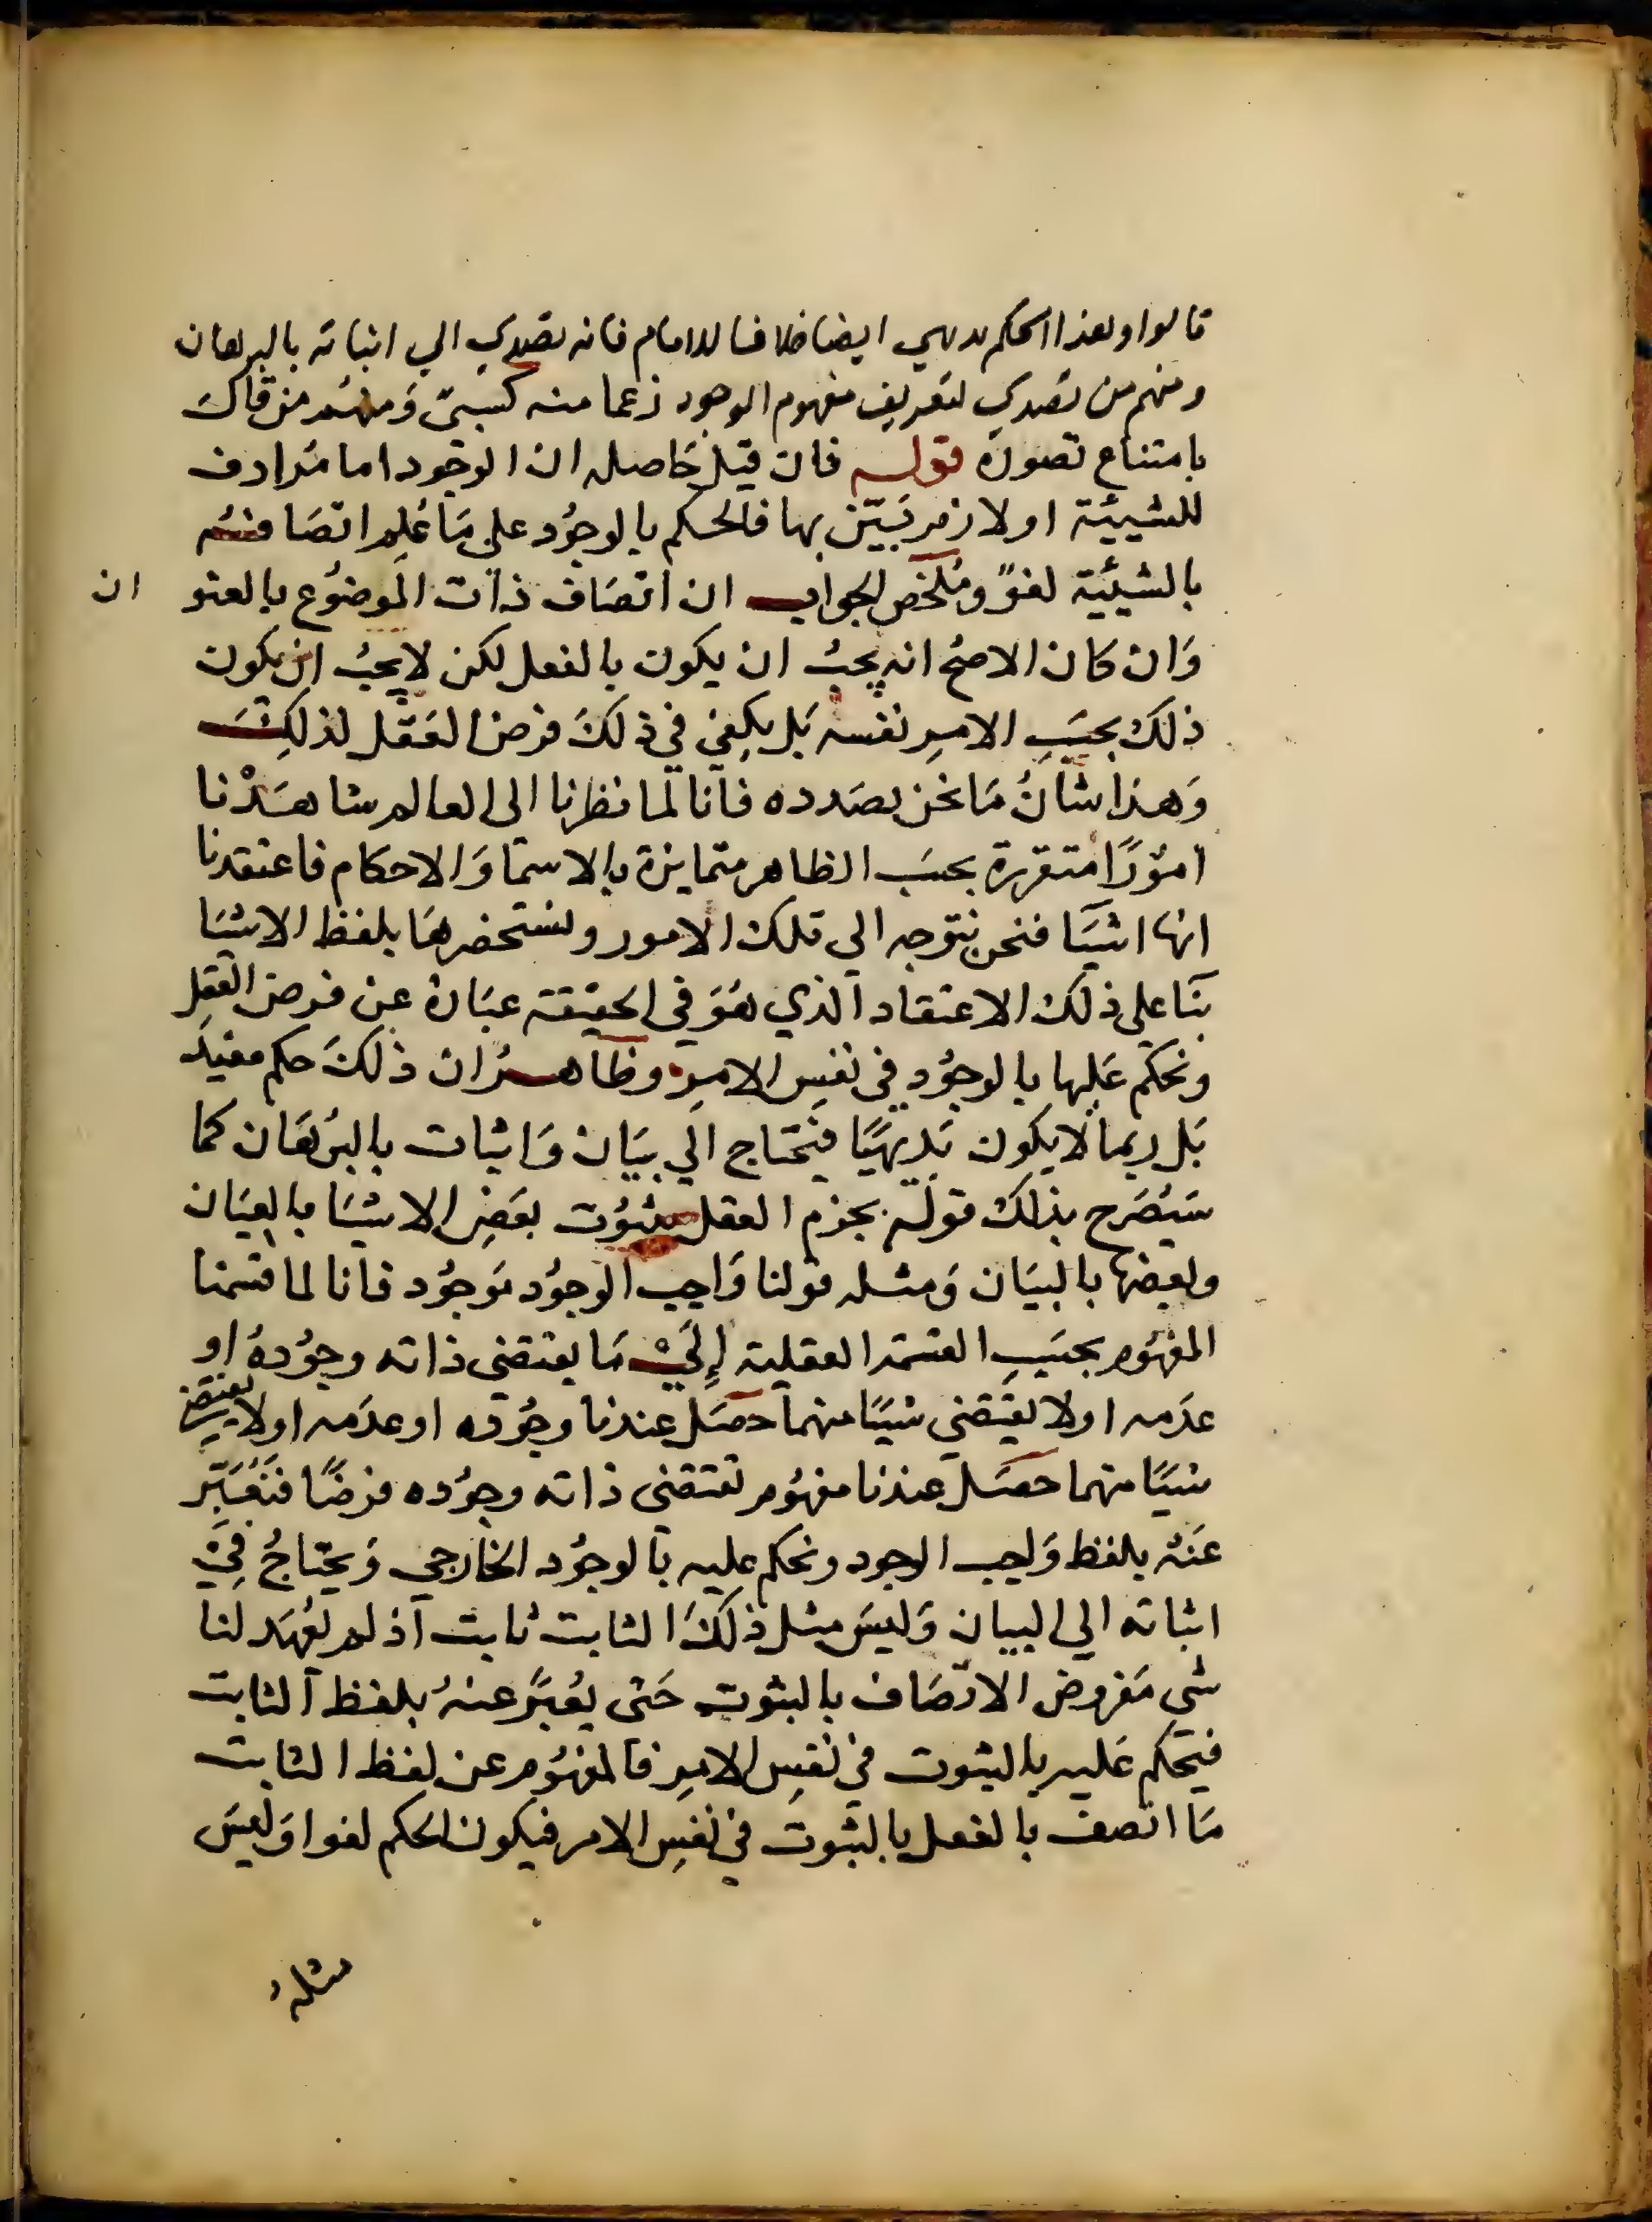 قالوا وهذا الحكم بديهي ايضا خلافا للامام فانه تصدي الي اثباته بالبرهان
ومنهم من تصدي لتعريف مفهوم الوجود زعما منه كسبيّ وَمنهُم من قال
بامتناع تصوره قوله فان قيل حَاصله ان الوجود اما مُرادف
للشييّة او لازم بَيّن بها فالحكم بالوجُود علي مَا عُلِم اتصَافه
بالشيئية لغوً ومُلخص الجواب ان اتصَاف ذات الموضوُع بالعنو ان
وَان كان الاصحُ انه يجبُ ان يكون بالفعل لكن لا يجبُ ان يكون
ذلك بحسَبِ الامرِ نفسه بَل يكفي في ذلكَ فرض العَقل لذلِكَ
وَهذا شأنُ مَا نحن بصَدده فانا لما نظرنا الى العالم شاهَدْنا
امُورًا متقررة بحسَب الظاهر متمايزة بالاسمَا وَالاحكام فاعتقدنا
انها اشيَا فنحن نتوجه الي تلك الامور ونستحضرهَا بلفظ الاشيَا
بنَا علي ذلك الاعتقاد الذي هُوَ في الحقيقة عبَارة عن فرض العَقل
ونحكم عَليها بالوجُود في نفسِ الامرِ وظاهرُ ان ذلكَ حكم مفيد
بَل ربما لا يكون بَديهيًا فيحتاج الي بيَان وَاثبات بالبُرهَان كمَا
سَيُصَرح بذلك قوله بجزم العقل بثبوُت بعَضِ الاشيَا بالعيَان
وبعضها بالبيَان وَمثله قولنا وَاجب الوجوُد مَوجُود فانا لما قسَمنا
المفهُوم بحسَبِ القسمة العقلية إلَيْ مَا يقتضي ذاته وجوُدهُ او
عدَمه او لا يقتضي شيًا منهما حصَل عندنا وجُوده او عدَمه او لا يقتضي
شيًا منهما حصَل عندنا مفهُوم تقتضي ذاته وجوُده فرضًا فنُعَبّر
عَنهُ بلفظ وَاجب الوجود ونحكم عليه بالوجُود الخارجي وَيحتاجُ فِيْ
اثباته الي البيان وَليسَ مثل ذلكَ الثابت ثابت اذ لم يُعهَد لنا
شي مَفروض الاتصَاف بالثبوت حَتى يُعبّر عنهُ بلفظ الثابت
فيحكم عَليه بالثبوت في نفسِ الامرِ فالمفهُوم عن لفظ الثابت
مَا اتصف بالفعل بالثبوت في نفسِ الامر فيكون الحكم لغوا وَليسَ
مثلهُ